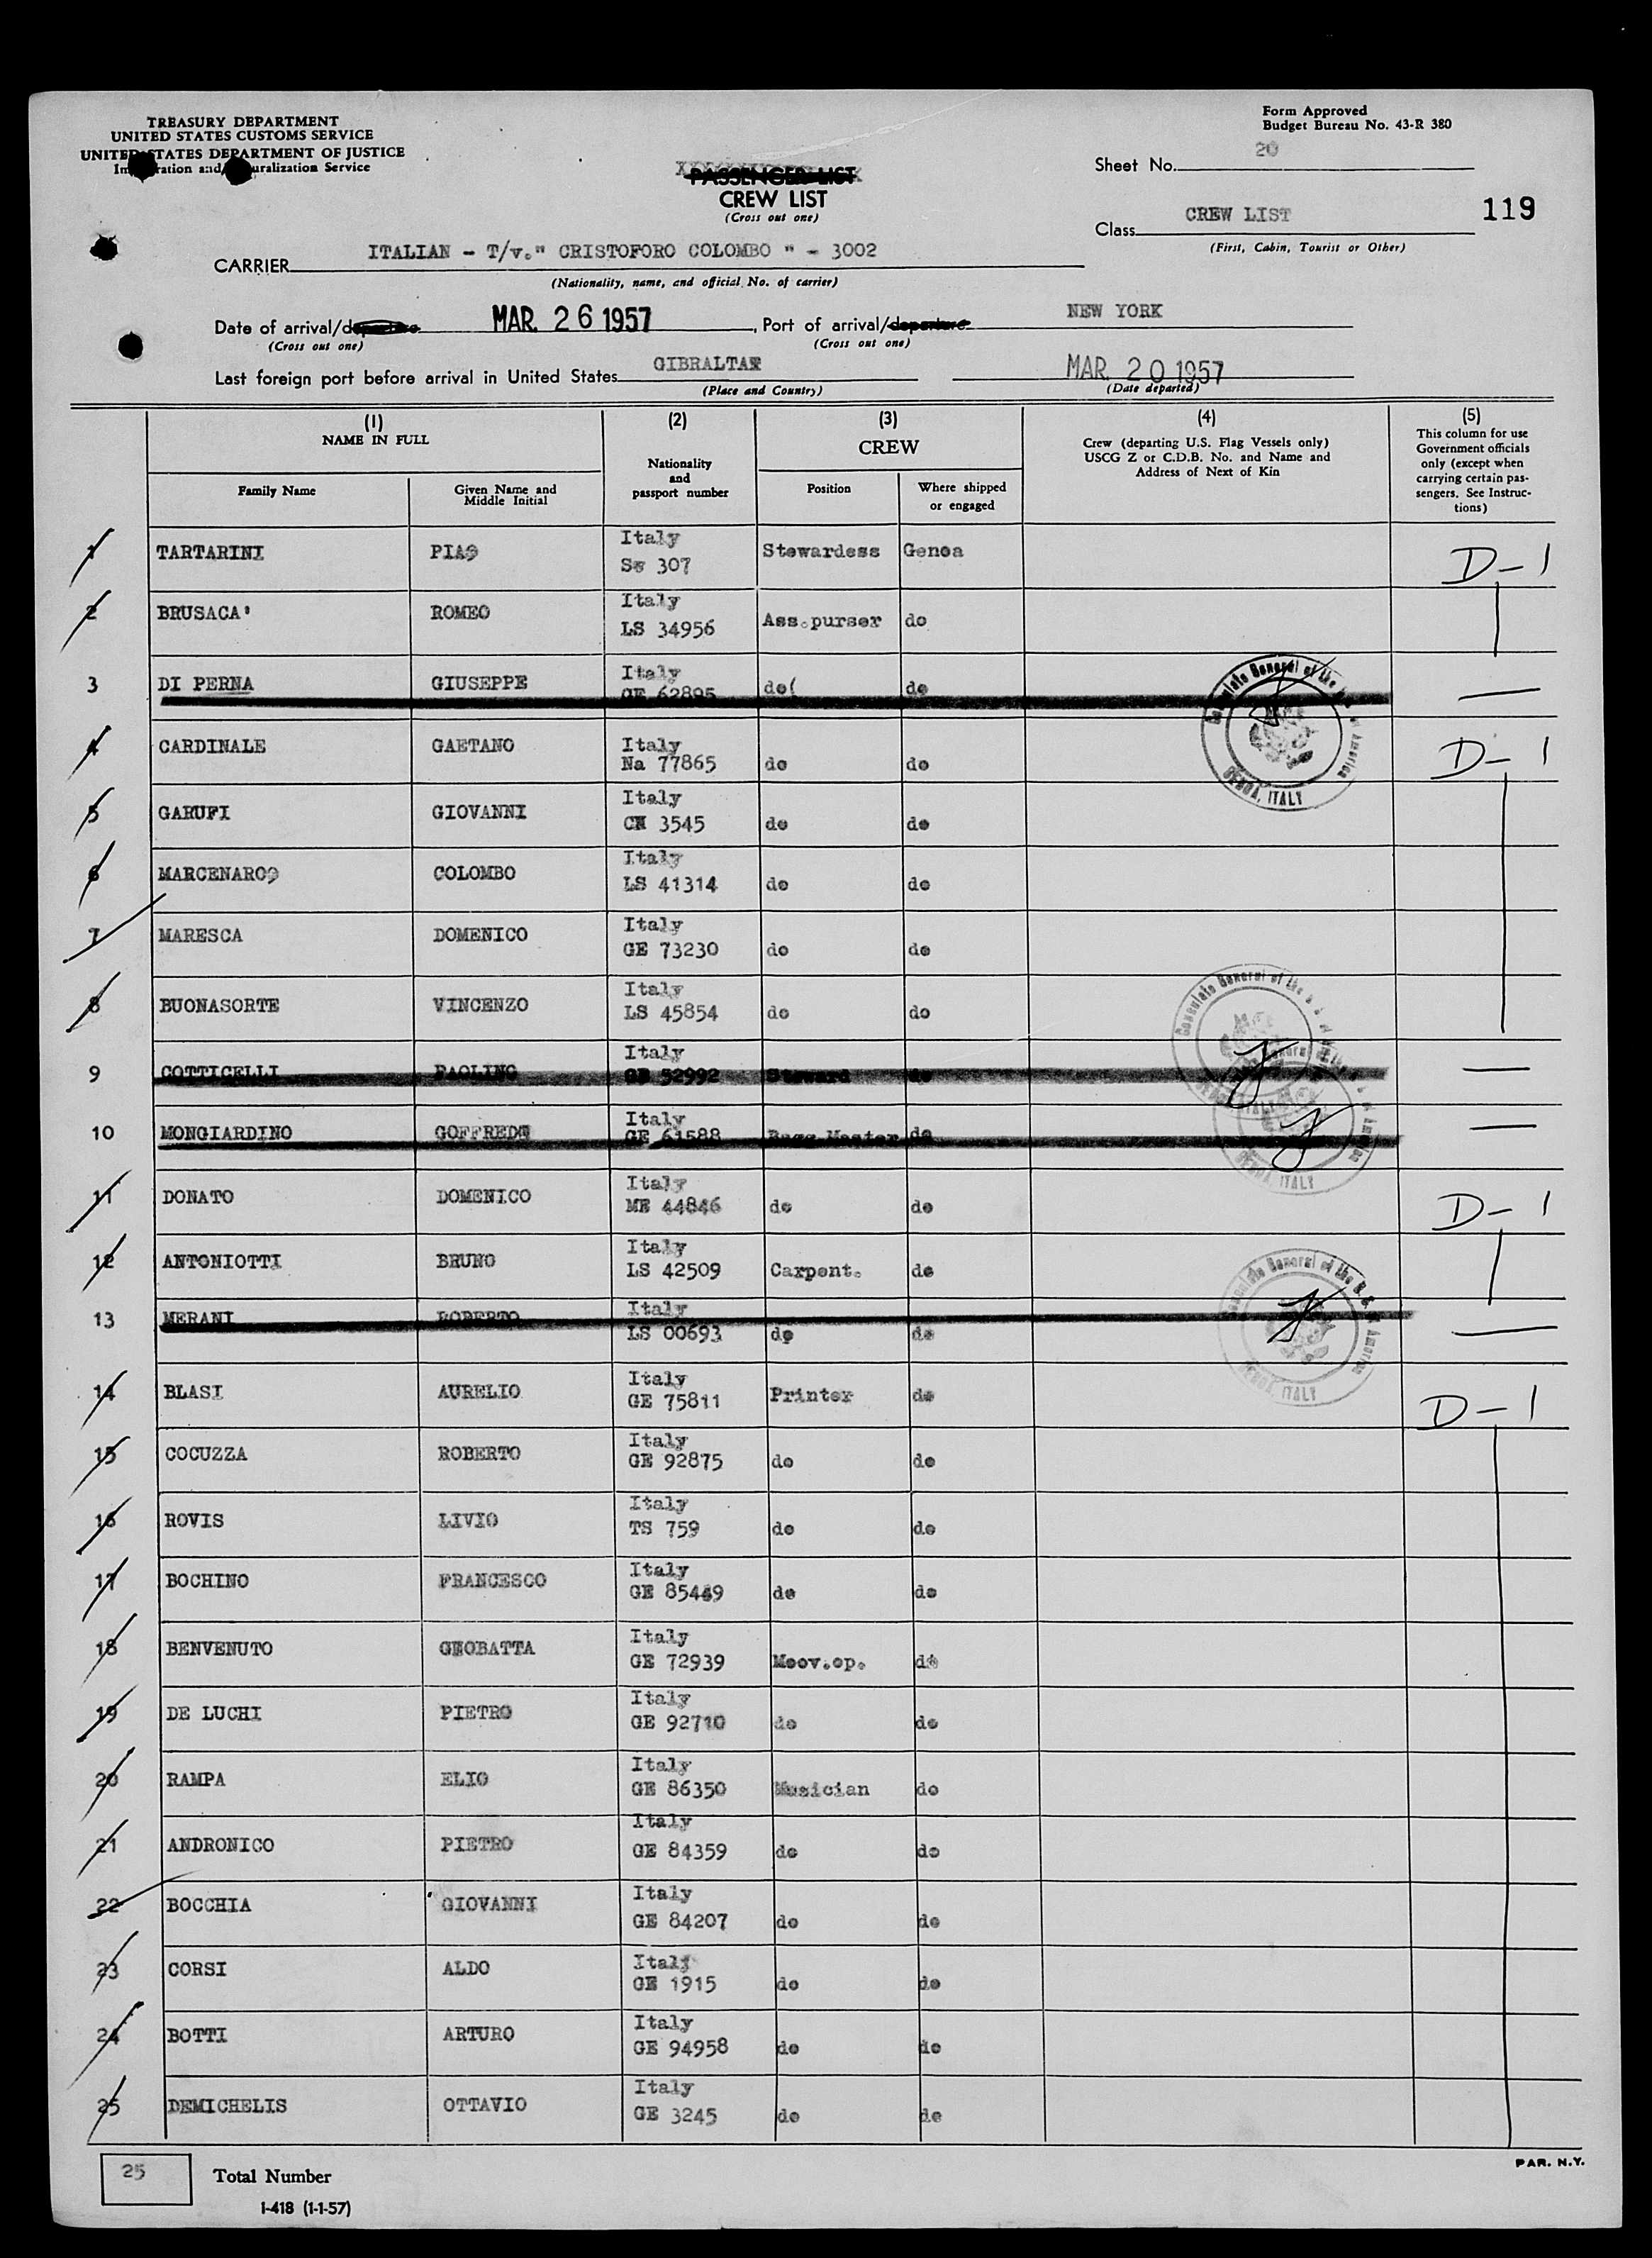 TREASURY DEPARTMENT
UNITED STATES CUSTOMS SERVICE
UNITED STATES DEPARTMENT OF JUSTICE
Immigration and Naturalization Service
Form Approved
Budget Bureau No. 43-R 380
PASSENGER LIST
CREW LIST
(Cross out one)
Sheet No. 20
Class CREW LIST
(First, Cabin, Tourist or Other)
119
CARRIER ITALIAN - T/v." CRISTOFORO COLOMBO " - 3002
(Nationality, name, and official No. of carrier)
Date of arrival/departure MAR. 26 1957, Port of arrival/departure NEW YORK
(Cross out one) (Cross out one)
Last foreign port before arrival in United States GIBRALTAR MAR 20 1957
(Place and Country) (Date departed)
(1) NAME IN FULL
Family Name
Given Name and Middle Initial
(2) Nationality and passport number
(3) CREW
Position
Where shipped or engaged
(4) Crew (departing U.S. Flag Vessels only) USCG Z or C.D.B. No. and Name and Address of Next of Kin
(5) This column for use Government officials only (except when carrying certain passengers. See Instructions)
1 TARTARINI PIA Italy Sw 307 Stewardess Genoa D-1
2 BRUSACA' ROMEO Italy LS 34956 Ass.purser do
3 DI PERNA GIUSEPPE Italy GE 62895 do( do —
4 CARDINALE GAETANO Italy Na 77865 do do D-1
5 GARUFI GIOVANNI Italy CH 3545 do do
6 MARCENARO COLOMBO Italy LS 41314 do do
7 MARESCA DOMENICO Italy GE 73230 do do
8 BUONASORTE VINCENZO Italy LS 45854 do do
9 COTTICELLI PAOLINO Italy GE 52992 Steward do —
10 MONGIARDINO GOFFREDO Italy GE 61588 Bagg.Master do —
11 DONATO DOMENICO Italy ME 44846 do do D-1
12 ANTONIOTTI BRUNO Italy LS 42509 Carpent. do
13 MERANI ROBERTO Italy LS 00693 do do —
14 BLASI AURELIO Italy GE 75811 Printer do D-1
15 COCUZZA ROBERTO Italy GE 92875 do do
16 ROVIS LIVIO Italy TS 759 do do
17 BOCHINO FRANCESCO Italy GE 85449 do do
18 BENVENUTO GEOBATTA Italy GE 72939 Moov.op. do
19 DE LUCHI PIETRO Italy GE 92710 do do
20 RAMPA ELIO Italy GE 86350 Musician do
21 ANDRONICO PIETRO Italy GE 84359 do do
22 BOCCHIA GIOVANNI Italy GE 84207 do do
23 CORSI ALDO Italy GE 1915 do do
24 BOTTI ARTURO Italy GE 94958 do do
25 DEMICHELIS OTTAVIO Italy GE 3245 do do
Consulate General of the U.S. of America
GENOA, ITALY
25 Total Number
I-418 (1-1-57)
PAR. N.Y.